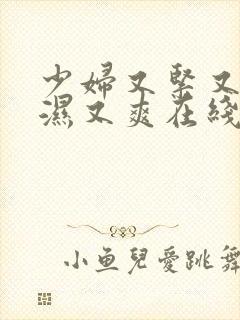 少婦又緊又
濕又爽在綫
小鱼兒愛跳舞